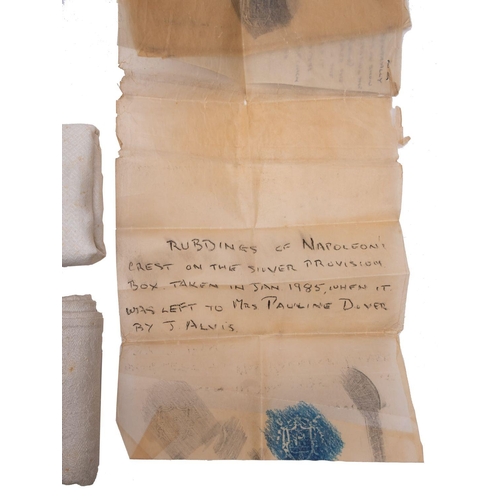 RUBDINGS OF NAPOLEON'S
CREST ON THE SILVER PROVISION
BOX TAKEN IN JAN 1985, WHEN IT
WAS LEFT TO MRS PAULINE DOVER
BY J ALVIS.